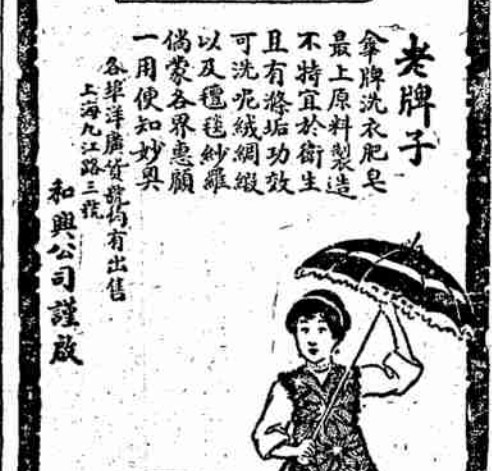 老牌子
傘牌洗衣肥皂
最上原料製造
不特宜於衛生
且有滌垢功效
可洗呢絨綢緞
以及氊毯紗羅
倘蒙各界惠顧
一用便知妙奥
各埠洋廣貨號均有出售
上海九江路三號
和興公司謹啟